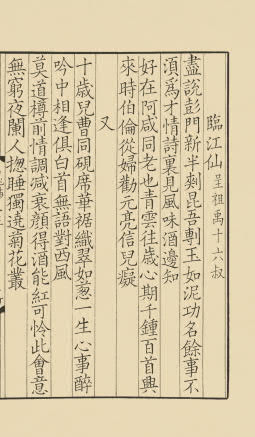 臨江仙 呈祖禹十六叔
盡說彭門新半剌昆吾剸玉如泥功名餘事不
須爲才情詩裏見風味酒邊知
好在阿咸同老也青雲往歲心期千鍾百首興
來時伯倫從婦勸元亮信兒癡
又
十歲兒曹同硯席華裾織翠如葱一生心事醉
吟中相逢俱白首無語對西風
莫道樽前情調減衰顔得酒能紅可怜此會意
無窮夜闌人㧾睡獨遶菊花叢